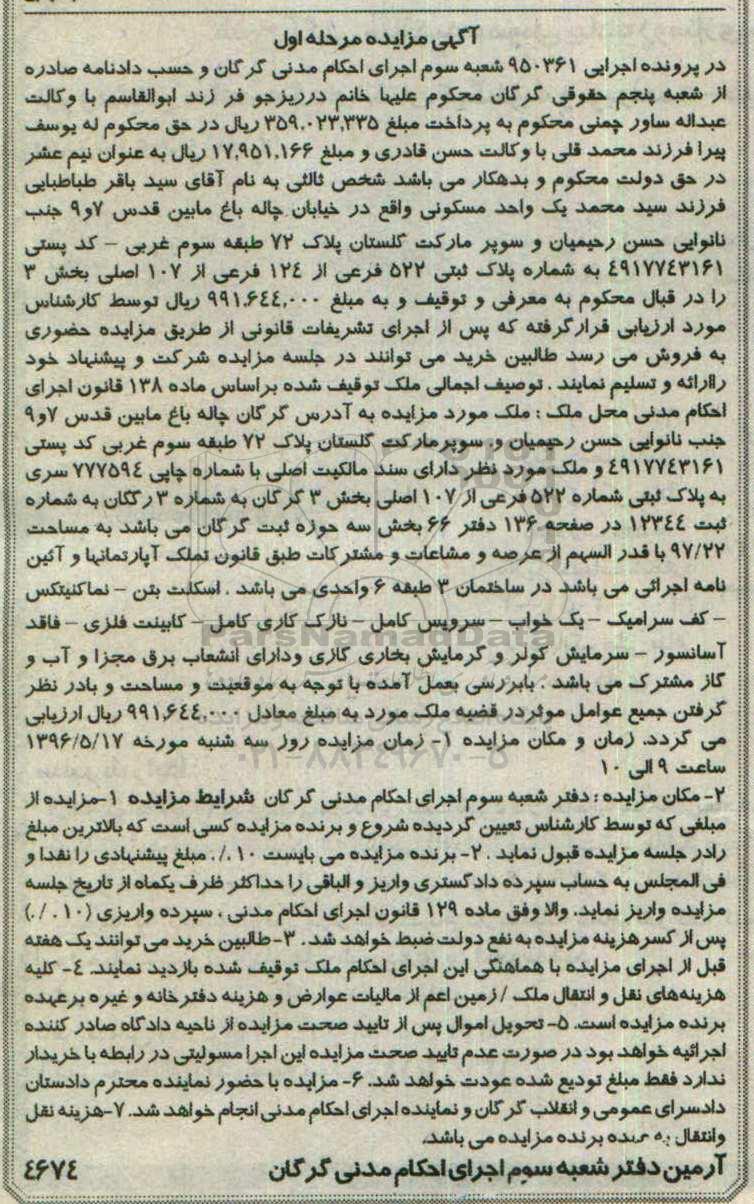 آگهی مزایده مرحله اول
در پرونده اجرایی ۹۵۰۳۶۱ شعبه سوم اجرای احکام مدنی گرگان و حسب دادنامه صادره
از شعبه پنجم حقوقی گرگان محکوم علیها خانم درریزجو فر زند ابوالقاسم با وکالت
عبداله ساور چمنی محکوم به پرداخت مبلغ ۳۵۹،۰۲۳،۳۳۵ ریال در حق محکوم له یوسف
پیرا فرزند محمد قلی با وکالت حسن قادری و مبلغ ۱۷،۹۵۱،۱۶۶ ریال به عنوان نیم عشر
در حق دولت محکوم و بدهکار می باشد شخص ثالثی به نام آقای سید باقر طباطبایی
فرزند سید محمد یک واحد مسکونی واقع در خیابان چاله باغ مابین قدس ۷و۹ جنب
نانوایی حسن رحیمیان و سوپر مارکت گلستان پلاک ۷۲ طبقه سوم غربی - کد پستی
۴۹۱۷۷۴۳۱۶۱ به شماره پلاک ثبتی ۵۲۲ فرعی از ۱۲۴ فرعی از ۱۰۷ اصلی بخش ۳
را در قبال محکوم به معرفی و توقیف و به مبلغ ۹۹۱،۶۴۴،۰۰۰ ریال توسط کارشناس
مورد ارزیابی قرارگرفته که پس از اجرای تشریفات قانونی از طریق مزایده حضوری
به فروش می رسد طالبین خرید می توانند در جلسه مزایده شرکت و پیشنهاد خود
راارائه و تسلیم نمایند . توصیف اجمالی ملک توقیف شده براساس ماده ۱۳۸ قانون اجرای
احکام مدنی محل ملک : ملک مورد مزایده به آدرس گرگان چاله باغ مابین قدس ۷و۹
جنب نانوایی حسن رحیمیان و سوپرمارکت گلستان پلاک ۷۲ طبقه سوم غربی کد پستی
۴۹۱۷۷۴۳۱۶۱ و ملک مورد نظر دارای سند مالکیت اصلی با شماره چاپی ۷۷۷۵۹۴ سری
به پلاک ثبتی شماره ۵۲۲ فرعی از ۱۰۷ اصلی بخش ۳ گرگان به شماره ۳ رگکان به شماره
ثبت ۱۲۳۴۴ در صفحه ۱۳۶ دفتر ۶۶ بخش سه حوزه ثبت گرگان می باشد به مساحت
۹۷/۲۲ با قدر السهم از عرصه و مشاعات و مشترکات طبق قانون تملک آپارتمانها و آئین
نامه اجرائی می باشد در ساختمان ۳ طبقه ۶ واحدی می باشد . اسکلت بتن - نماکنیتکس
- کف سرامیک - یک خواب - سرویس کامل - نازک کاری کامل - کابینت فلزی - فاقد
آسانسور - سرمایش کولر و گرمایش بخاری گازی ودارای انشعاب برق مجزا و آب و
گاز مشترک می باشد . بابررسی بعمل آمده با توجه به موقعیت و مساحت و بادر نظر
گرفتن جمیع عوامل موثردر قضیه ملک مورد به مبلغ معادل ۹۹۱،۶۴۴،۰۰۰ ریال ارزیابی
می گردد. زمان و مکان مزایده ۱- زمان مزایده روز سه شنبه مورخه ۱۳۹۶/۵/۱۷
ساعت ۹ الی ۱۰
۲- مکان مزایده : دفتر شعبه سوم اجرای احکام مدنی گرگان شرایط مزایده ۱-مزایده از
مبلغی که توسط کارشناس تعیین گردیده شروع و برنده مزایده کسی است که بالاترین مبلغ
رادر جلسه مزایده قبول نماید . ۲- برنده مزایده می بایست ۱۰ ./. مبلغ پیشنهادی را نقدا و
فی المجلس به حساب سپرده دادگستری واریز و الباقی را حداکثر ظرف یکماه از تاریخ جلسه
مزایده واریز نماید. والا وفق ماده ۱۲۹ قانون اجرای احکام مدنی ، سپرده واریزی (۱۰ . / .)
پس از کسر هزینه مزایده به نفع دولت ضبط خواهد شد . ۳- طالبین خرید می توانند یک هفته
قبل از اجرای مزایده با هماهنگی این اجرای احکام ملک توقیف شده بازدید نمایند. ۴- کلیه
هزینه‌های نقل و انتقال ملک / زمین اعم از مالیات عوارض و هزینه دفترخانه و غیره برعهده
برنده مزایده است. ۵- تحویل اموال پس از تایید صحت مزایده از ناحیه دادگاه صادر کننده
اجرائیه خواهد بود در صورت عدم تایید صحت مزایده این اجرا مسولیتی در رابطه با خریدار
ندارد فقط مبلغ تودیع شده عودت خواهد شد. ۶- مزایده با حضور نماینده محترم دادستان
دادسرای عمومی و انقلاب گرگان و نماینده اجرای احکام مدنی انجام خواهد شد. ۷-هزینه نقل
وانتقال به عهده برنده مزایده می باشد.
آرمین دفتر شعبه سوم اجرای احکام مدنی گرگان ۴۶۷۴